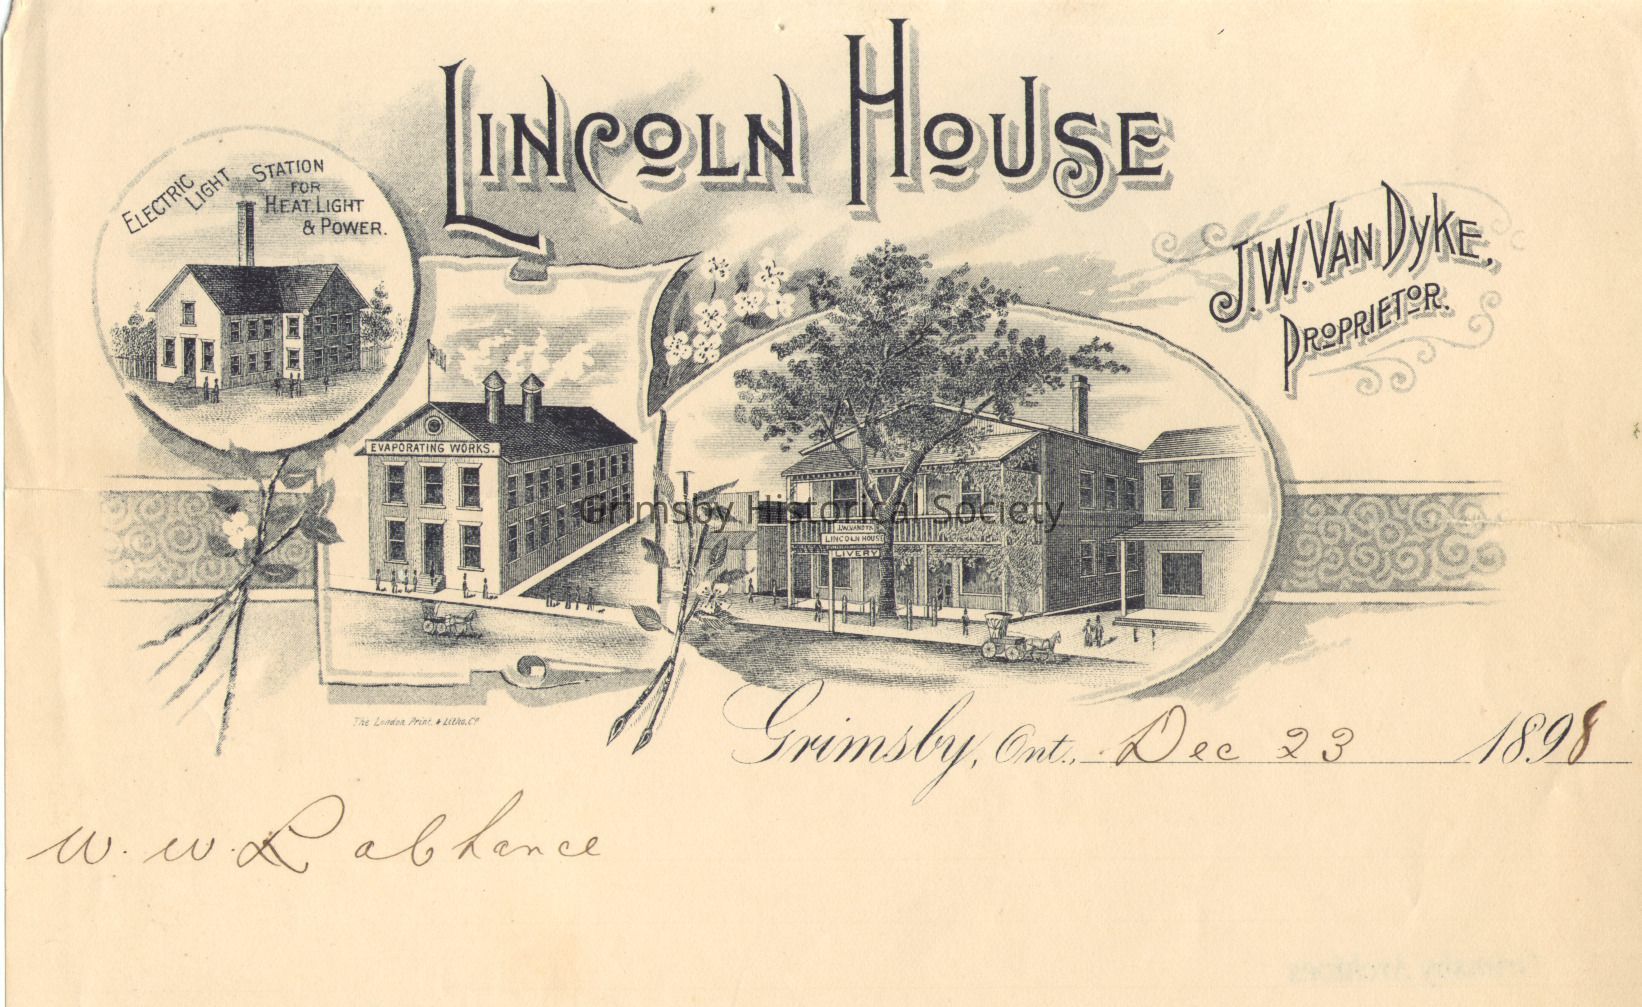 LINCOLN HOUSE
ELECTRIC LIGHT STATION
FOR
HEAT, LIGHT
& POWER.
J. W. VAN DYKE,
PROPRIETOR.
EVAPORATING WORKS.
J.W. VANDYK
LINCOLN HOUSE
LIVERY
Grimsby Historical Society
The London Print. & Litho. Co
Grimsby, Ont., Dec 23 1898
W. W. Labhance